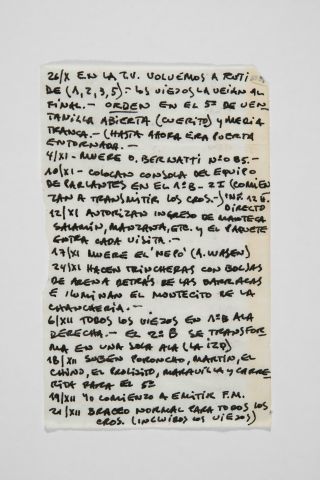 26/X EN LA T.V. VOLVEMOS A RUTI
DE (1,2,3,5) = LOS VIEJOS LA VEIAN AL
FINAL.- ORDEN EN EL 5º DE VEN
TANILLA ABIERTA (CUERITO) Y MEDIA
TRANCA.- (HASTA AHORA ERA PUERTA
ENTORNADA.-
4/XI - MUERE O. BERNATTI Nº 085.-
10/XI - COLOCAN CONSOLA DEL EQUIPO
DE PARLANTES EN EL 1º B - ZI (COMIEN
ZAN A TRANSMITIR LOS CROS.-) INF. 12 B.
DIRECTO
12/XI AUTORIZAN INGRESO DE MANTECA
SALAMIN, MANZANA, ETC. Y EL PAQUETE
ENTRA CADA VISITA.-
17/XI MUERE EL "NEPO" (A. WASEN)
24/XI HACEN TRINCHERAS CON BOLSAS
DE ARENA DETRÁS DE LAS BARRACAS
E ILUMINAN EL MONTECITO DE LA
CHANCHERIA.-
6/XII TODOS LOS VIEJOS EN 1º B ALA
DERECHA.- EL 2º B SE TRANSFOR
MA EN UNA SOLA ALA (LA IZQ)
18/XII SUBEN PORONCHO, MARTIN, EL
CHINO, EL PROLIJITO, MARAVILLA Y CARRE
RITA PARA EL 5º
19/XII YO COMIENZO A EMITIR F.M.
21/XII BRACEO NORMAL PARA TODOS LOS
CROS. (INCLUIDOS LOS VIEJOS)